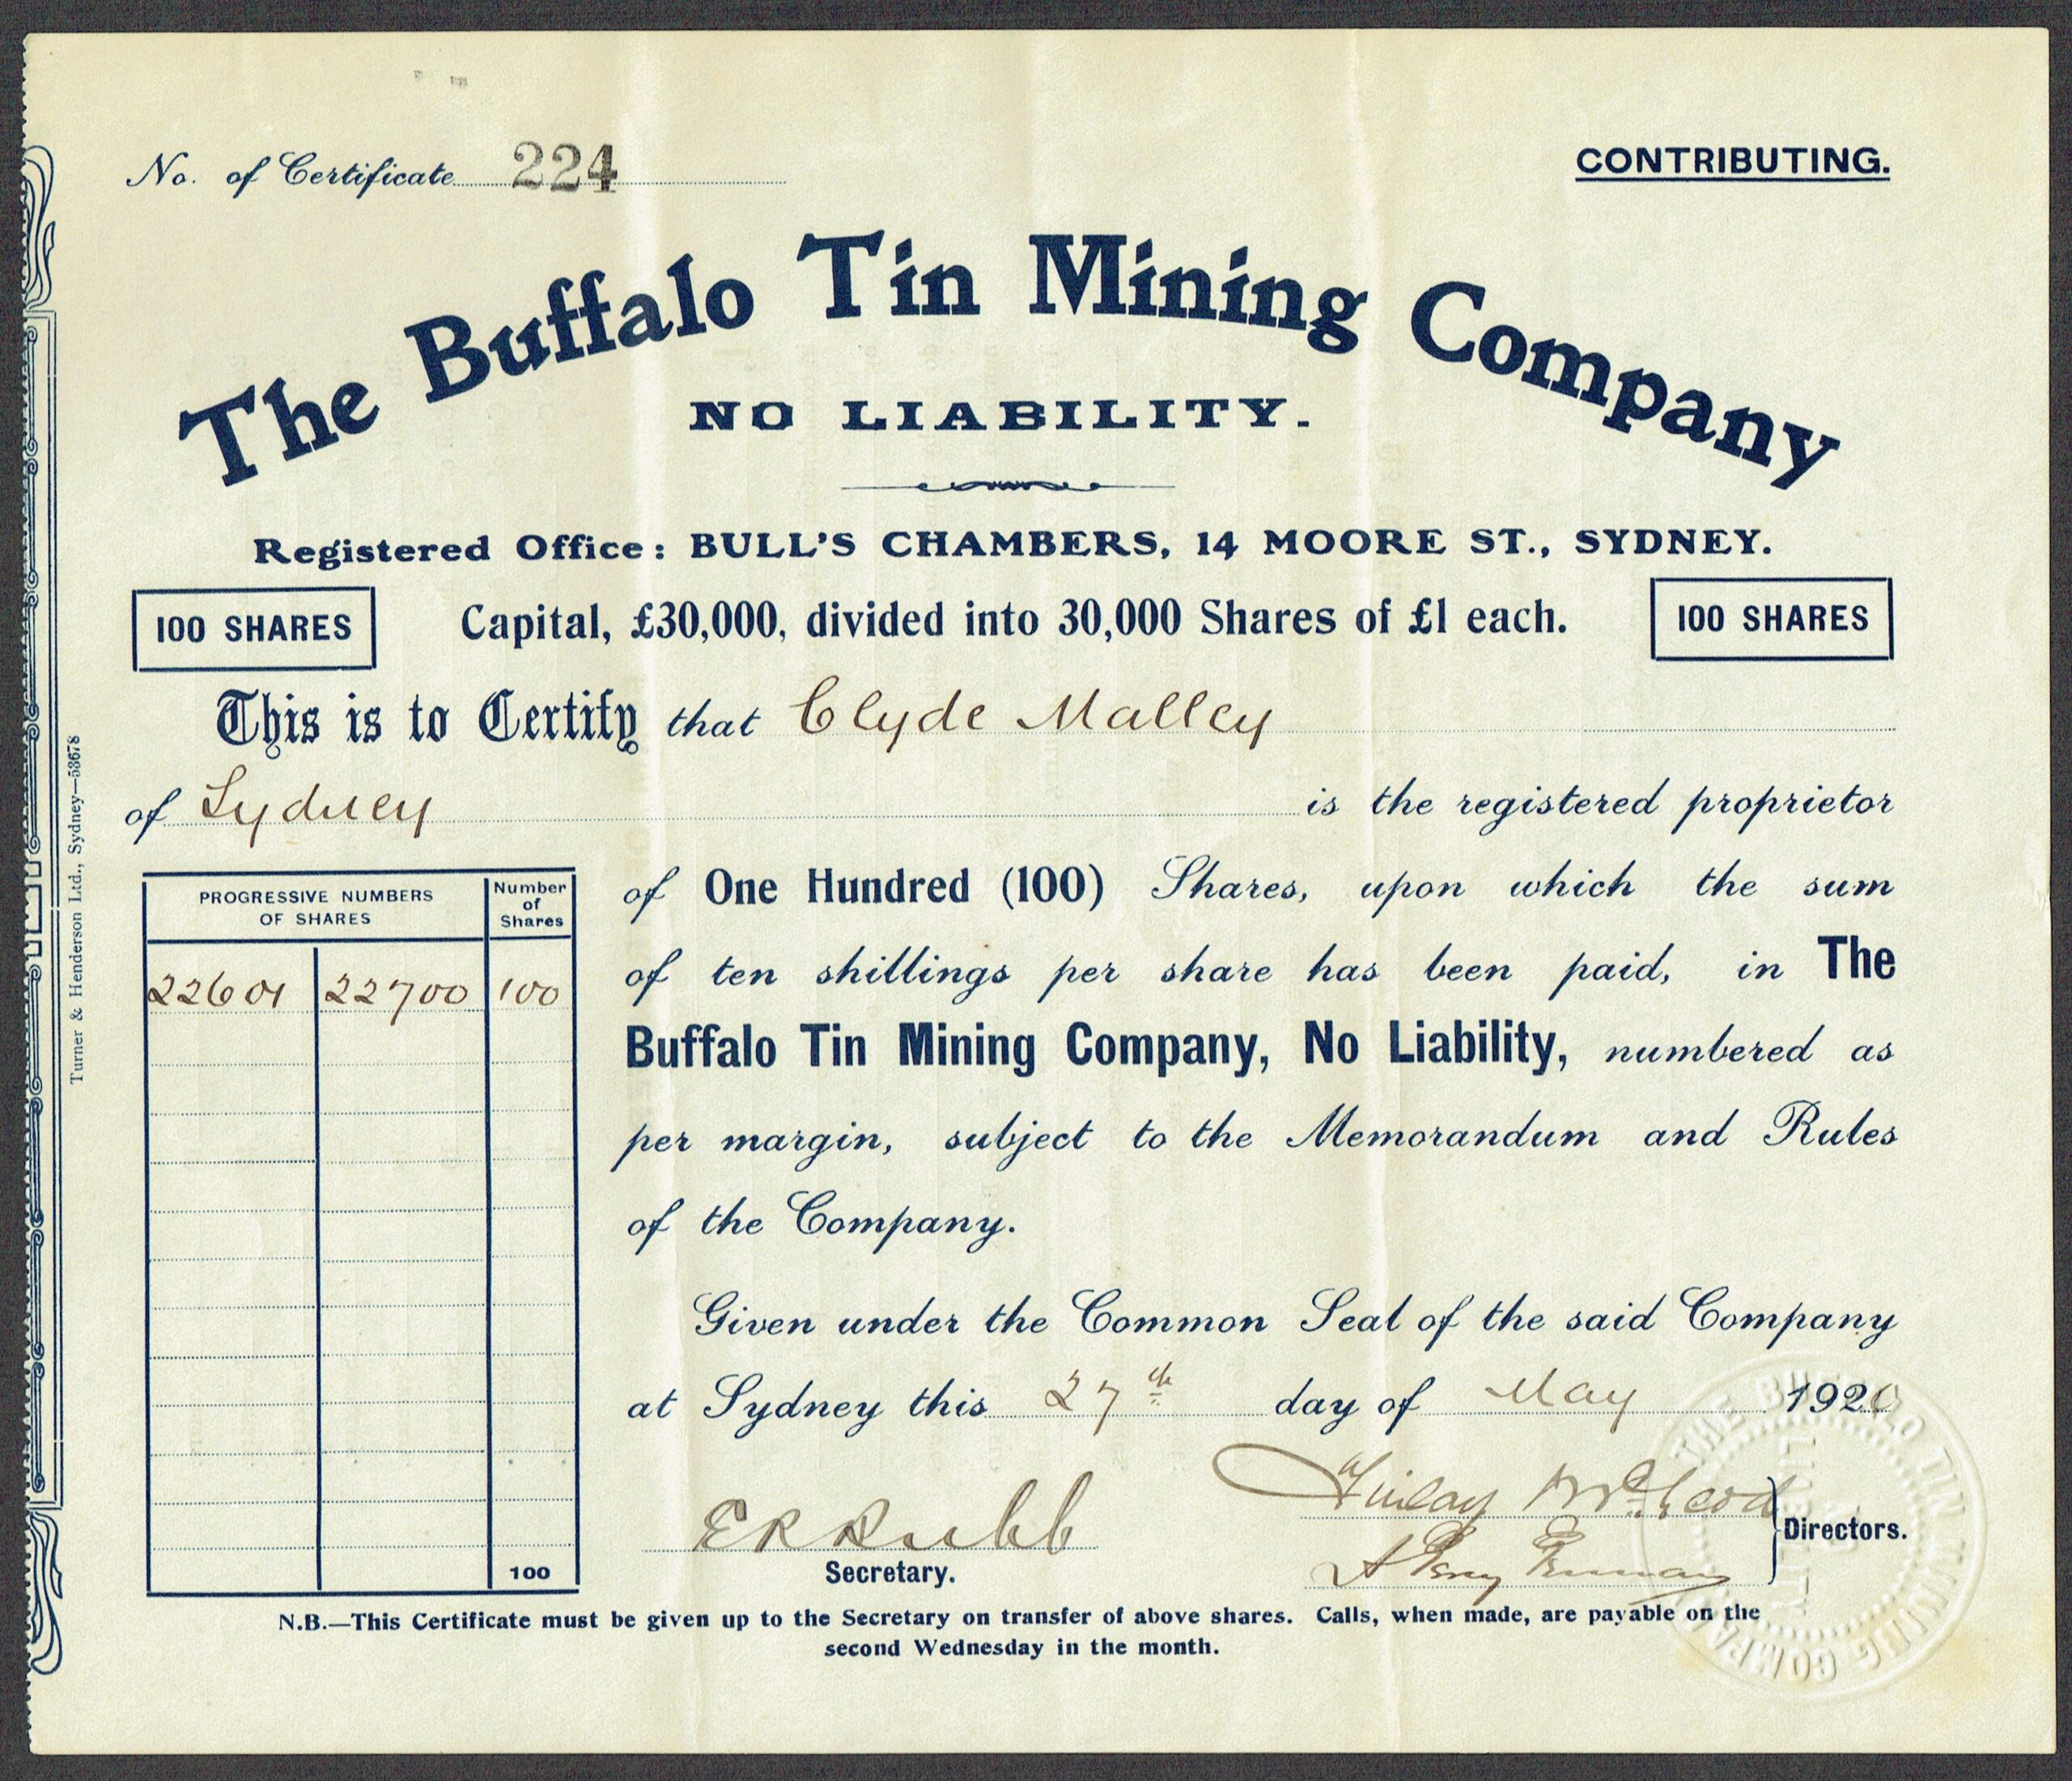 No. of Certificate 224
CONTRIBUTING.
The Buffalo Tin Mining Company
NO LIABILITY.
Registered Office: BULL'S CHAMBERS, 14 MOORE ST., SYDNEY.
100 SHARES
Capital, £30,000, divided into 30,000 Shares of £1 each.
100 SHARES
This is to Certify that Clyde Malley
of Sydney is the registered proprietor
of One Hundred (100) Shares, upon which the sum
of ten shillings per share has been paid, in The
Buffalo Tin Mining Company, No Liability, numbered as
per margin, subject to the Memorandum and Rules
of the Company.
PROGRESSIVE NUMBERS
OF SHARES
Number
of
Shares
22601 22700 100
100
Given under the Common Seal of the said Company
at Sydney this 27th day of May 1920
E R Rubb
Secretary.
Finlay McLeod
Directors.
N.B.—This Certificate must be given up to the Secretary on transfer of above shares. Calls, when made, are payable on the
second Wednesday in the month.
Turner & Henderson Ltd., Sydney—53678
THE BUFFALO TIN MINING COMPANY
NO
LIABILITY